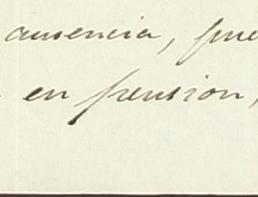 ausencia, pue
en pension,